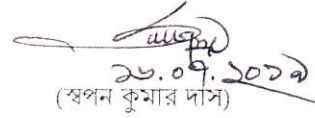 ১৬.০৭.২০১৯
(স্বপন কুমার দাস)